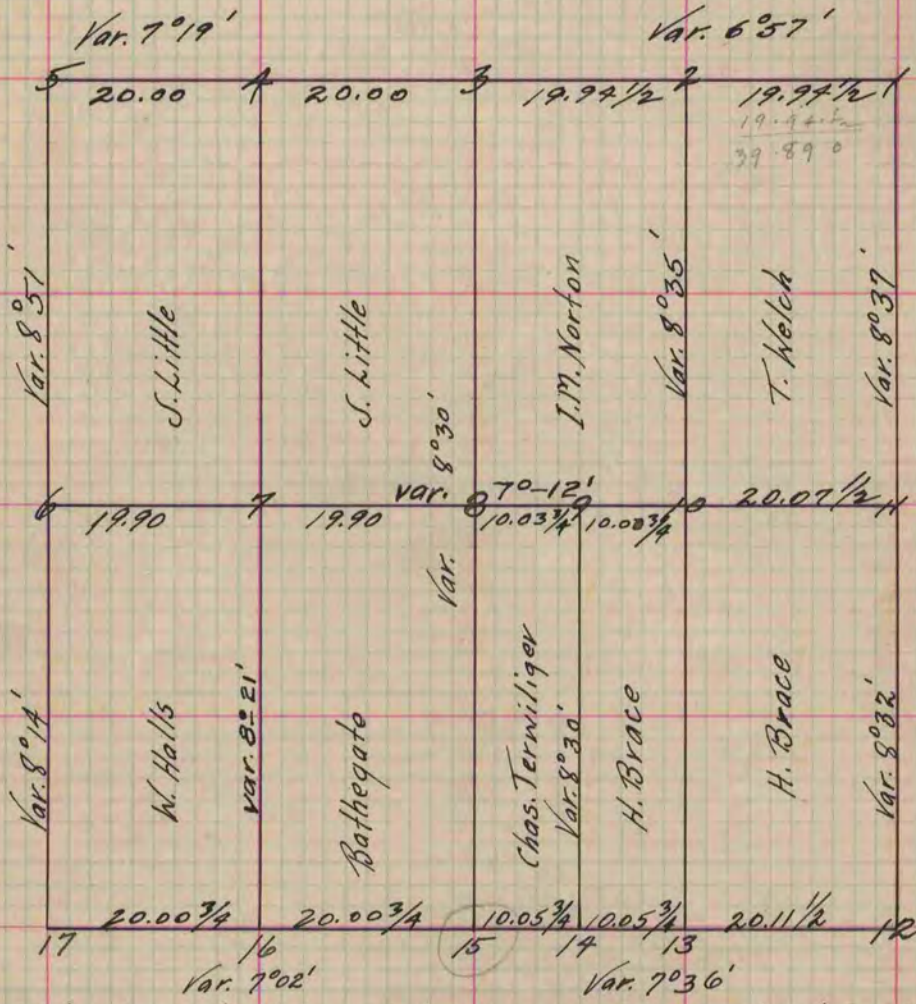 Var. 7°19' Var. 6°57'
5 4 3 2 1
20.00 20.00 19.94 1/2 19.94 1/2
19.94.½
39.89 0
Var. 8°51'
S. Little
S. Little
Var. 8°30'
I.M. Norton
Var. 8°35'
T. Welch
Var. 8°37'
6 7 8 9 10 11
var. 7°-12'
19.90 19.90 10.03 3/4 10.03 3/4 20.07 1/2
Var.
Var. 8°14'
W. Halls
var. 8°21'
Bathegate
Chas. Terwiliger
Var. 8°30'
H. Brace
H. Brace
Var. 8°32'
20.00 3/4 20.00 3/4 10.05 3/4 10.05 3/4 20.11 1/2
17 16 15 14 13 12
Var. 7°02' Var. 7°36'